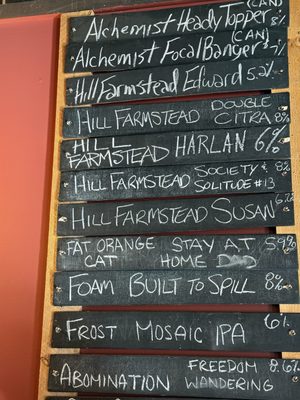 (CAN)
Alchemist Heady Topper 8%
(CAN)
Alchemist Focal Banger 7%
Hill Farmstead Edward 5.2%
HILL FARMSTEAD DOUBLE CITRA 8%
HILL FARMSTEAD HARLAN 6%
HILL FARMSTEAD SOCIETY & SOLITUDE #13 8%
HILL FARMSTEAD SUSAN 6.2
FAT ORANGE CAT STAY AT HOME DAD 5.9%
FOAM BUILT TO SPILL 8%
FROST MOSAIC IPA 6%
ABOMINATION FREEDOM WANDERING 8.6%